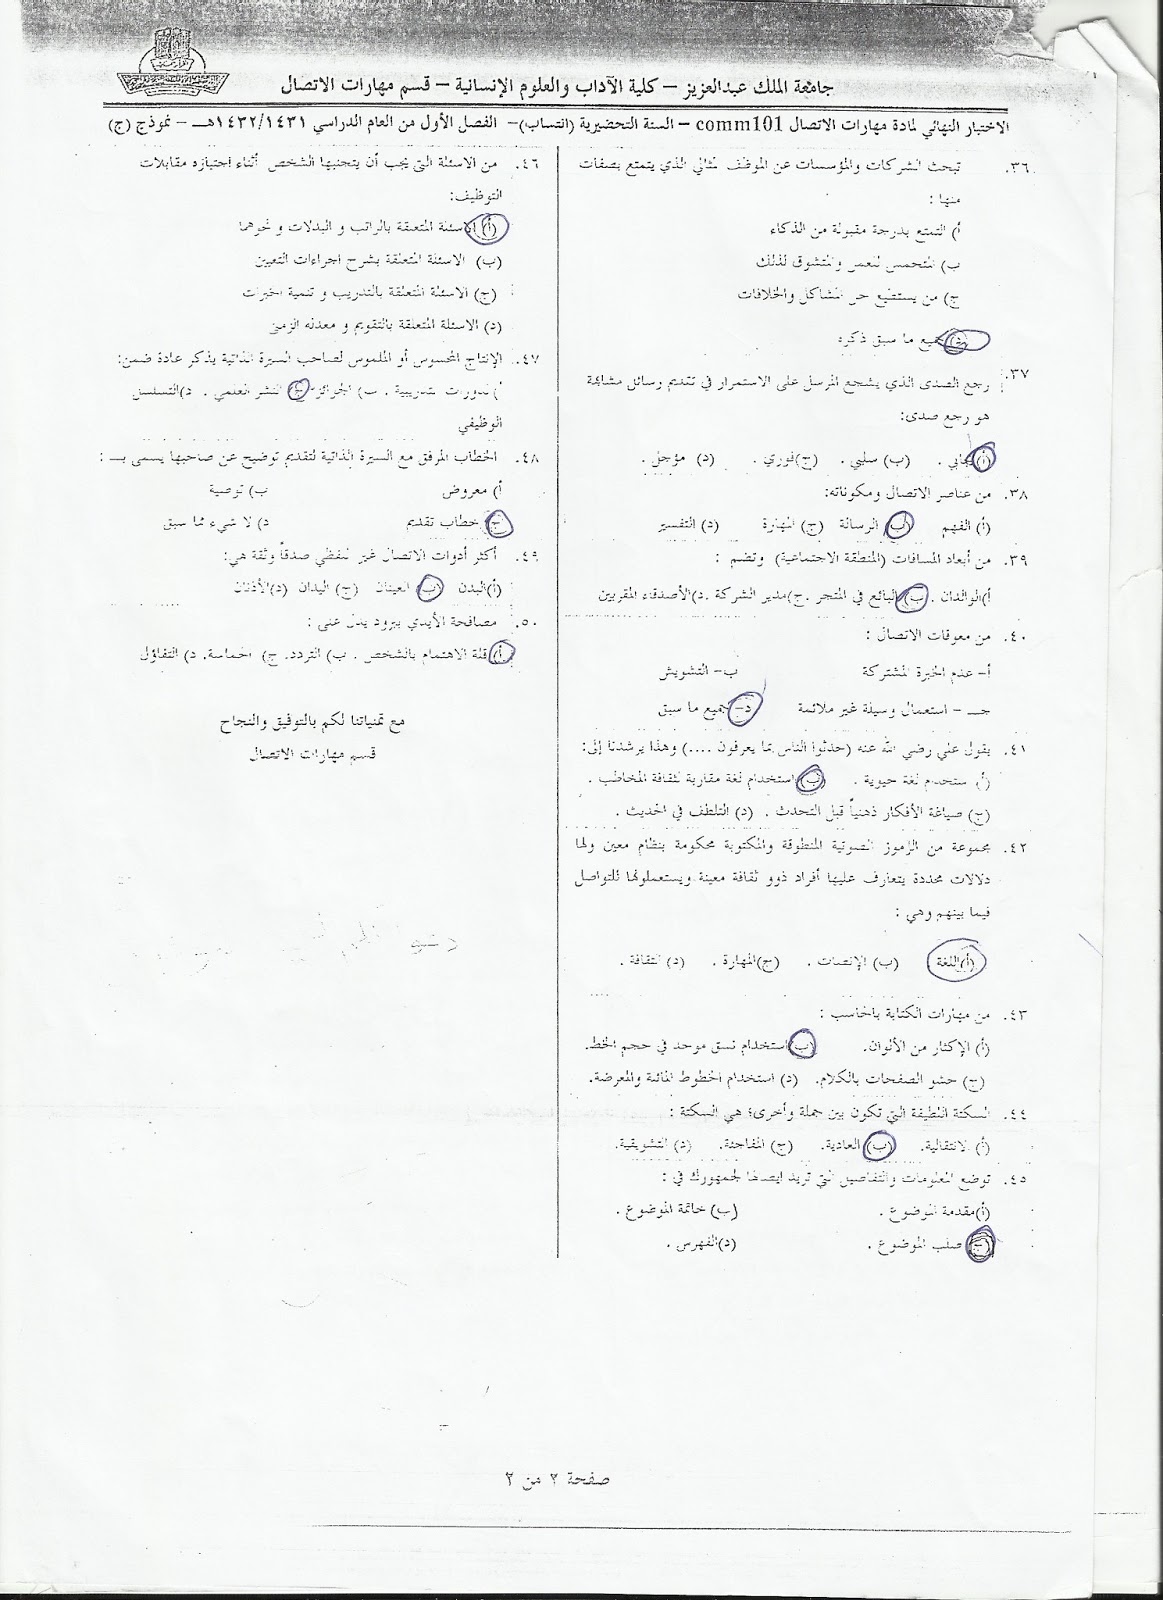 جامعة الملك عبدالعزيز – كلية الآداب والعلوم الإنسانية – قسم مهارات الاتصال
الاختبار النهائي لمادة مهارات الاتصال comm101 – السنة التحضيرية (انتساب) – الفصل الأول من العام الدراسي ١٤٣٢/١٤٣١هـ – نموذج (ج)
٣٦. تبحث الشركات والمؤسسات عن الموظف المثالي الذي يتمتع بصفات
منها :
أ) التمتع بدرجة مقبولة من الذكاء
ب) المتحمس للعمل والمتشوق لذلك
ج) من يستطيع حل المشاكل والخلافات
د) جميع ما سبق ذكره
٣٧. رجع الصدى الذي يشجع المرسل على الاستمرار في تقديم رسائل مشابهة
هو رجع صدى:
(أ) إيجابي . (ب) سلبي . (ج)فوري . (د) مؤجل .
٣٨. من عناصر الاتصال ومكوناته:
(أ) الفهم (ب) الرسالة (ج) المهارة (د) التفسير
٣٩. من أبعاد المسافات (المنطقة الاجتماعية) وتضم :
أ)الوالدان . ب) البائع في المتجر . ج)مدير الشركة . د)الأصدقاء المقربين
٤٠. من معوقات الاتصال :
أ- عدم الخبرة المشتركة ب- التشويش
جـ - استعمال وسيلة غير ملائمة د- جميع ما سبق
٤١. يقول علي رضي الله عنه (حدثوا الناس بما يعرفون ....) وهذا يرشدنا إلى:
(أ) استخدام لغة حيوية . (ب) استخدام لغة مقاربة لثقافة المخاطب .
(ج) صياغة الأفكار ذهنياً قبل التحدث . (د) التلطف في الحديث .
٤٢. مجموعة من الرموز الصوتية المنطوقة والمكتوبة محكومة بنظام معين ولها
دلالات محددة يتعارف عليها أفراد ذوو ثقافة معينة ويستعملونها للتواصل
فيما بينهم وهي :
(أ)اللغة (ب) الإنصات . (ج)المهارة . (د) الثقافة .
٤٣. من مهارات الكتابة بالحاسب :
(أ) الإكثار من الألوان. (ب) استخدام نسق موحد في حجم الخط.
(ج) حشو الصفحات بالكلام. (د) استخدام الخطوط المائلة والمعرضة.
٤٤. السكتة اللطيفة التي تكون بين جملة وأخرى؛ هي السكتة :
(أ) الانتقالية. (ب) العادية. (ج) المفاجئة. (د) التشويقية.
٤٥. توضع المعلومات والتفاصيل التي تريد ايصالها لجمهورك في :
(أ)مقدمة الموضوع . (ب) خاتمة الموضوع .
(ج) صلب الموضوع . (د)الفهرس .
٤٦. من الاسئلة التي يجب أن يتجنبها الشخص أثناء اجتيازه مقابلات
التوظيف:
(أ) الاسئلة المتعلقة بالراتب و البدلات و نحوهما
(ب) الاسئلة المتعلقة بشرح اجراءات التعيين
(ج) الاسئلة المتعلقة بالتدريب و تنمية الخبرات
(د) الاسئلة المتعلقة بالتقويم و معدله الزمني
٤٧. الإنتاج المحسوس أو الملموس لصاحب السيرة الذاتية يذكر عادة ضمن:
أ)الدورات التدريبية . ب) الجوائز ج) النشر العلمي . د)التسلسل
الوظيفي
٤٨. الخطاب المرفق مع السيرة الذاتية لتقديم توضيح عن صاحبها يسمى بـ :
أ) معروض ب) توصية
ج) خطاب تقديم د) لا شيء مما سبق
٤٩. أكثر أدوات الاتصال غير اللفظي صدقاً وثقة هي:
(أ)البدن (ب) العينان (ج) اليدان (د)الأذنان
٥٠. مصافحة الأيدي ببرود يدل على :
أ) قلة الاهتمام بالشخص . ب) التردد. ج) الحماسة. د) التفاؤل
مع تمنياتنا لكم بالتوفيق والنجاح
قسم مهارات الاتصال
صفحة ٢ من ٢